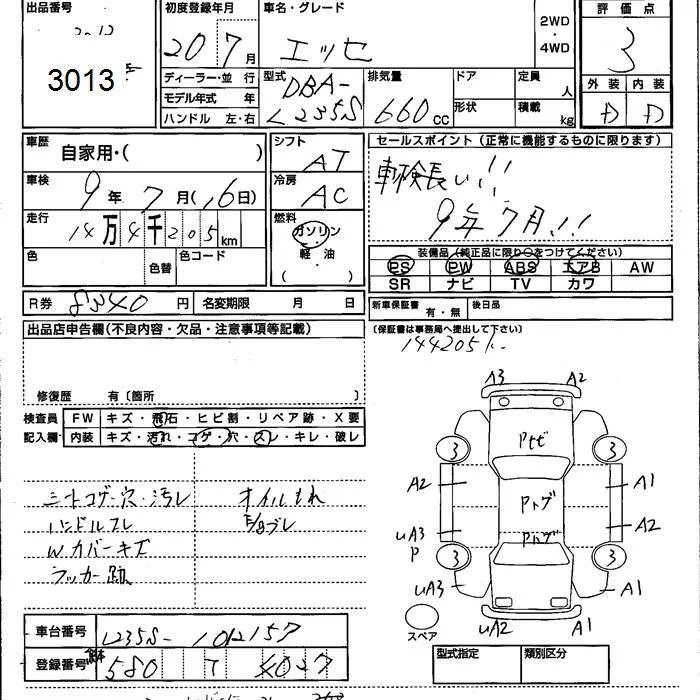 出品番号 初度登録年月 車名・グレード 評価点
3013 20 7月 エッセ 2WD・4WD 3
ディーラー・並行 型式 DBA-L235S 排気量 660cc ドア 定員 人 外装 内装
モデル年式 年 形状 積載 kg D D
ハンドル 左・右
車歴 自家用・( ) シフト AT セールスポイント (正常に機能するものに限ります)
車検 9年 7月 (16日) 冷房 AC 車検長い!!
走行 14万4千205km 燃料 ガソリン・軽油 ( ) 9年7月!!
色 色替 色コード 装備品 (純正品に限り○をつけてください)
PS PW ABS エアB AW
SR ナビ TV カワ
R券 8340円 名変期限 月 日 新車保証書 有・無 後日品
出品店申告欄(不良内容・欠品・注意事項等記載) (保証書は事務局へ提出して下さい)
144205k
修復歴 有〔箇所 〕
検査員 FW キズ・飛石・ヒビ割・リペア跡・X要
記入欄 内装 キズ・汚れ・コゲ・穴・スレ・キレ・破レ
シートコゲ・穴・汚レ オイルもれ
ハンドルスレ
Wカバーキズ
ラッカー跡
A3 A2
3 3
A2 A1
uA3 A2
P
3 3
uA3 A1
uA2 A1
スペア
車台番号 L235S-1012157
登録番号 580
型式指定 類別区分